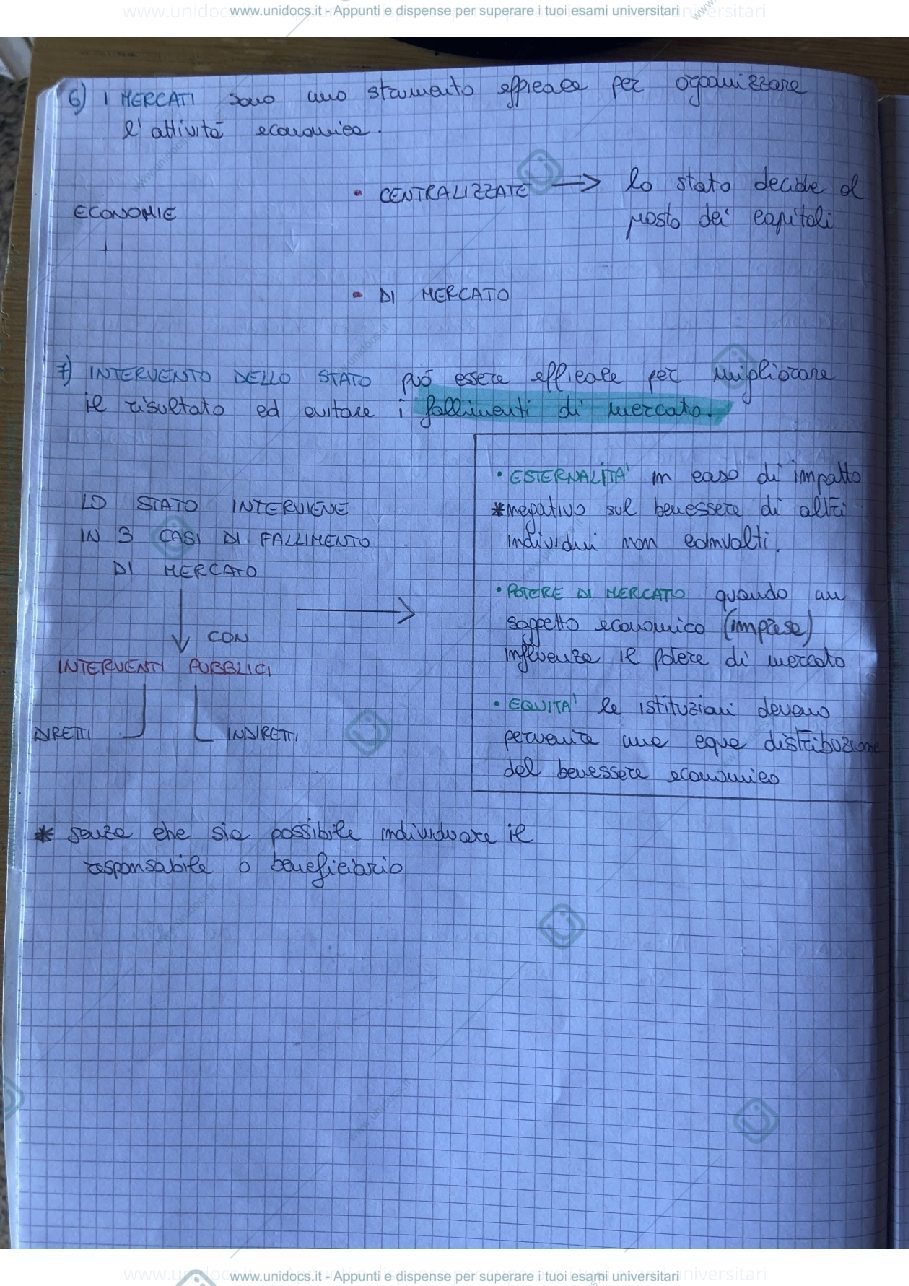 www.unidocs.it - Appunti e dispense per superare i tuoi esami universitari
6) I MERCATI sono uno strumento efficace per organizzare
l'attività economica.
ECONOMIE
• CENTRALIZZATE → lo stato decide al
posto dei capitali
• DI MERCATO
7) INTERVENTO DELLO STATO può essere efficace per migliorare
il risultato ed evitare i fallimenti di mercato.
LO STATO INTERVIENE
IN 3 CASI DI FALLIMENTO
DI MERCATO
CON
INTERVENTI PUBBLICI
DIRETTI
INDIRETTI
• ESTERNALITA' in caso di impatto
*negativo sul benessere di altri
individui non coinvolti.
• POTERE DI MERCATO quando un
soggetto economico (imprese)
influenza il potere di mercato
• EQUITA' le istituzioni devono
pervenire una eque distribuzione
del benessere economico
* senza che sia possibile individuare il
responsabile o beneficiario
www.unidocs.it - Appunti e dispense per superare i tuoi esami universitari